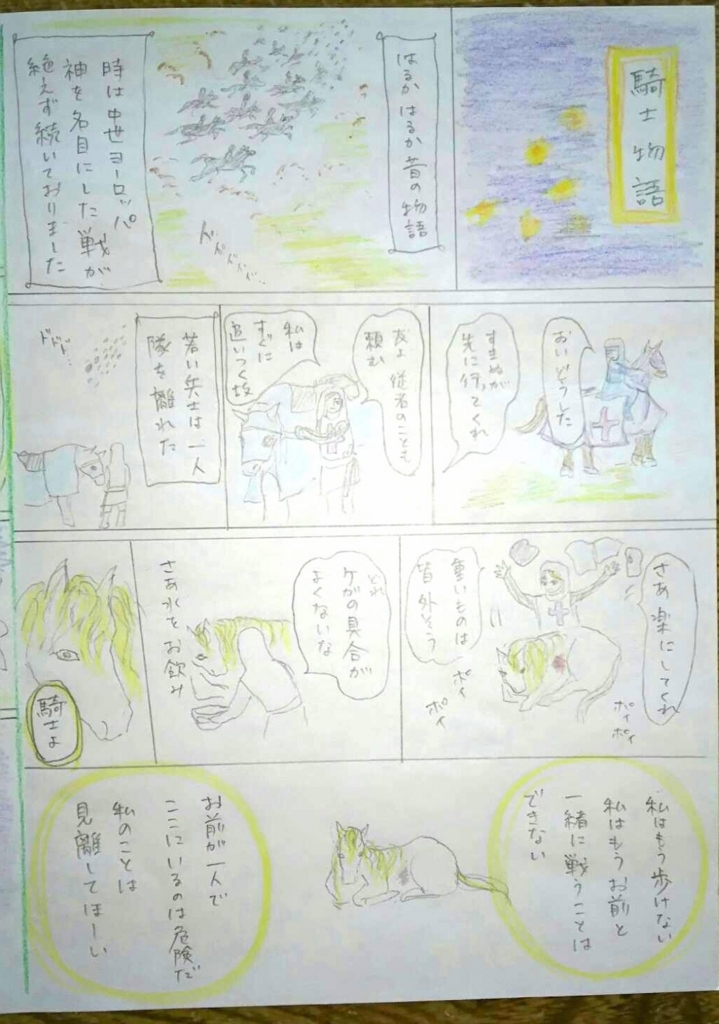 騎士物語
はるかはるか昔の物語
ドドドドド
時は中世ヨーロッパ
神を名目にした戦が
絶えず続いておりました
おいどうした
すまぬが
先に行ってくれ
友よ従者のことも
頼む
私は
すぐに
追いつく故
若い兵士は一人
隊を離れた
ドドド
さあ楽にしてくれ
重いものは
皆外そう
ポイ
ポイ
ポイ
ポイ
どれ
ケガの具合が
よくないな
さあ水をお飲み
騎士よ
私はもう歩けない
私はもうお前と
一緒に戦うことは
できない
お前が一人で
ここにいるのは危険だ
私のことは
見離してほーしい